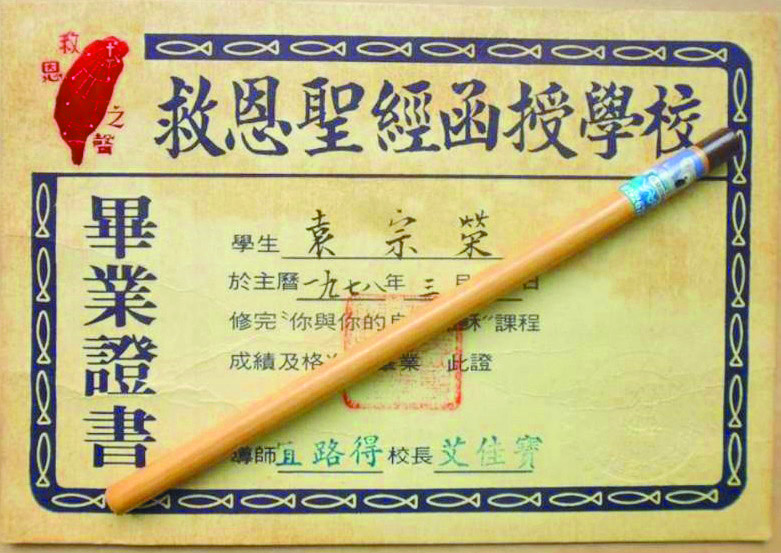 救恩之聲
救恩聖經函授學校
畢業證書
學生 袁宗榮
於主曆一九七八年三月 日
修完“你與你的 穌”課程
成績及格 業 此證
導師 路得 校長 艾佳寶